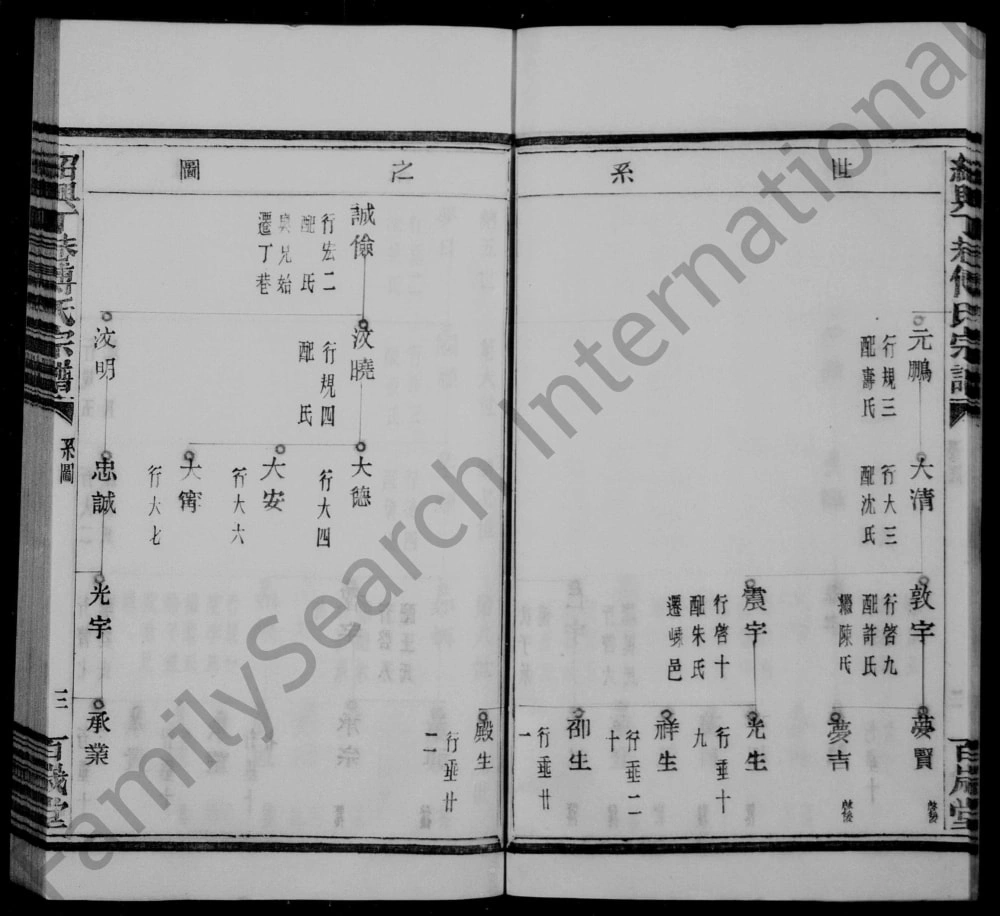 世 系 之 圖
紹興丁巷傅氏宗譜
百歲堂
元鵬
行規三
配壽氏
大清
行大三
配沈氏
敦宇
行啓九
配許氏
繼陳氏
夢賢
夢吉
震宇
行啓十
配朱氏
遷嵊邑
光生
行垂十
九
祥生
行垂二
十
卲生
行垂廿
一
殿生
行垂廿
二
誠儉
行宏二
配 氏
與兄始
遷丁巷
汶曉
行規四
配 氏
大德
行大四
大安
行大六
大
行大七
汶明
忠誠
光宇
承業
紹興丁巷傅氏宗譜
系圖
三
百歲堂
FamilySearch International